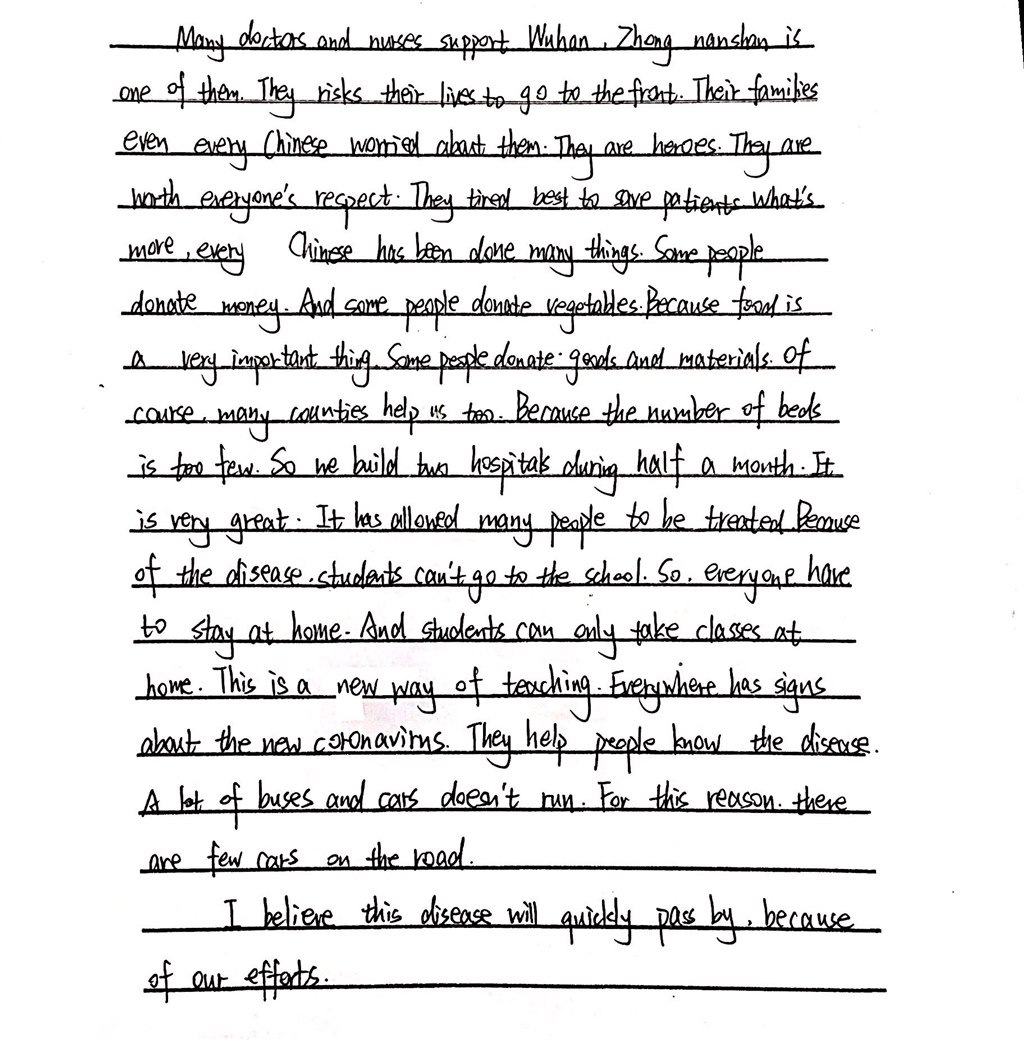 Many doctors and nurses support Wuhan, Zhong nanshan is
one of them. They risks their lives to go to the front. Their families
even every Chinese worried about them. They are heroes. They are
worth everyone's respect. They tired best to save patients What's
more, every Chinese has been done many things. Some people
donate money. And some people donate vegetables. Because food is
a very important thing. Some people donate goods and materials. Of
course, many counties help us too. Because the number of beds
is too few. So we build two hospitals during half a month. It
is very great. It has allowed many people to be treated. Because
of the disease, students can't go to the school. So, everyone have
to stay at home. And students can only take classes at
home. This is a new way of teaching. Everywhere has signs
about the new coronavirus. They help people know the disease.
A lot of buses and cars doesn't run. For this reason, there
are few cars on the road.
I believe this disease will quickly pass by, because
of our efforts.